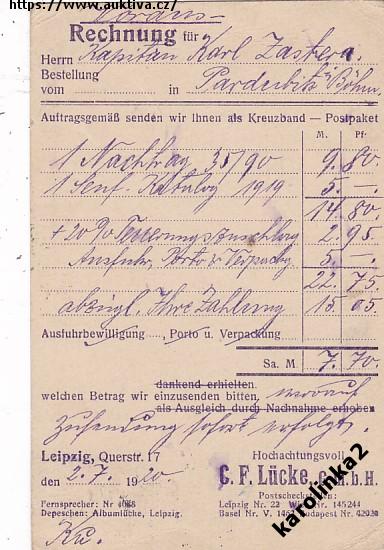 https://www.auktiva.cz/
Voraus-
Rechnung für
Herrn Kapitän Karl Zastera
Bestellung
vom in Pardubitz Böhm.
Auftragsgemäß senden wir Ihnen als Kreuzband — Postpaket
M. Pf.
1 Nachtrag 35/90 9. 80
1 Senf. Katalog 1919 5. —
14 80
+ 20% Teuerungszuschlag 2. 95
Ausfuhr, Porto & Verpackg. 5. —
22. 75
abzügl. Ihre Zahlung 15. 05
Ausfuhrbewilligung, Porto u. Verpackung
Sa. M. 7. 70
dankend erhielten.
welchen Betrag wir einzusenden bitten, worauf
als Ausgleich durch Nachnahme erheben
Zusendung sofort erfolgt.
Leipzig, Querstr. 17
Hochachtungsvoll
den 2. 7. 1920
C. F. Lücke, G.m.b.H.
Fernsprecher: Nr
Postscheckkonten:
Leipzig Nr. 22 Wien Nr. 145244
Depeschen: Albumlücke, Leipzig.
Basel Nr. V. Budapest Nr. 42030
karolinka2